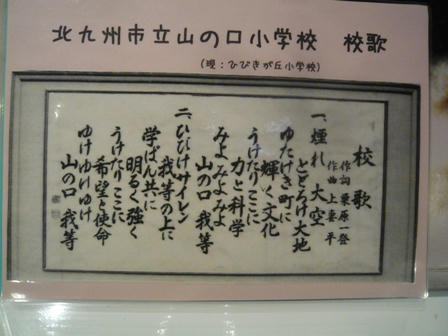 北九州市立山の口小学校　校歌
（現：ひびきが丘小学校）
校歌
作詞 栗原一登
作曲 上壱平
一、煙れ 大空
とどろけ大地
ゆたけき町に
輝く文化
うけたりここに
力と科学
みよみよみよ
山の口 我等
二、ひびけサイレン
我等の上に
学ばん共に
明るく強く
うけたりここに
希望と使命
ゆけゆけゆけ
山の口 我等